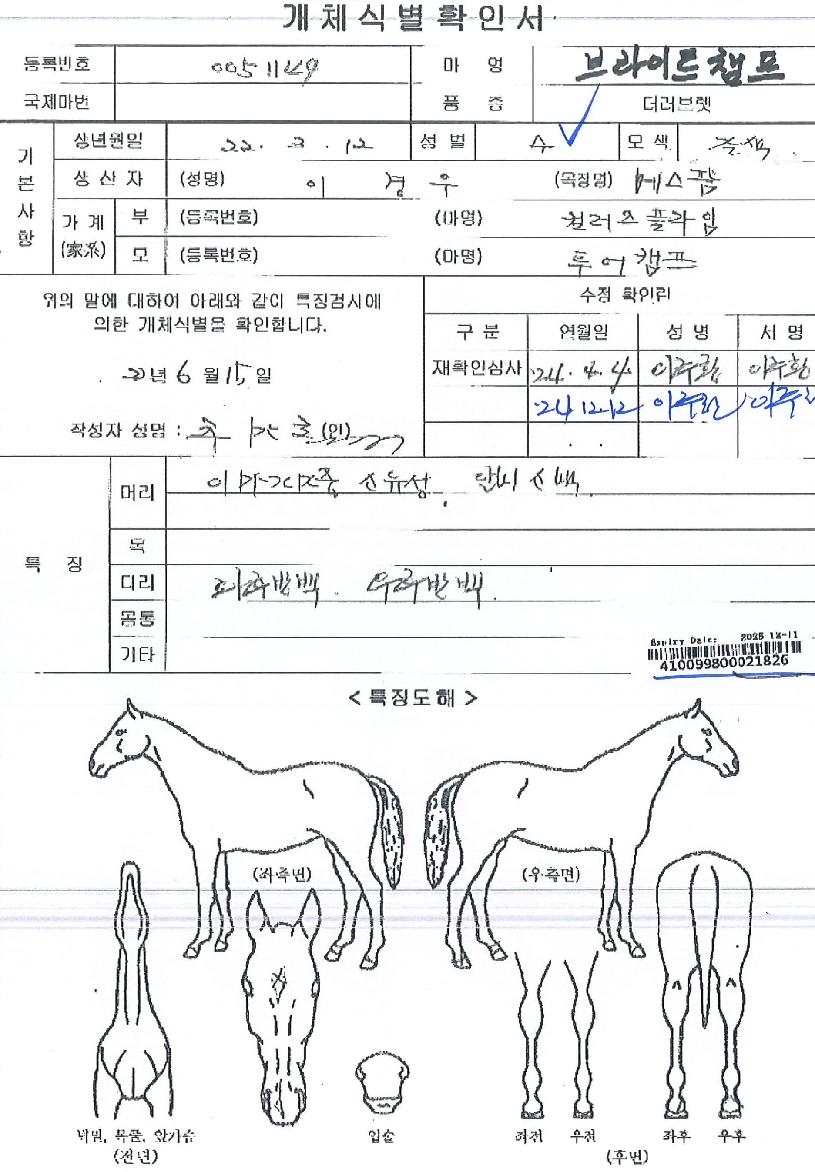 개체식별확인서
등록번호 0051149 마 명 브라이트캠프
국제마번 품 종 더러브렛
기본사항
생년월일 22. 3. 12 성별 수 모색
생산자 (성명) 이 경 우 (목장명)
가계(家系) 부 (등록번호) (마명) 컬러즈플라잉
모 (등록번호) (마명) 투어캠프
위의 말에 대하여 아래와 같이 특징검사에
의한 개체식별을 확인합니다.
22년 6월 15일
작성자 성명 : (인)
수정 확인란
구분 연월일 성명 서명
재확인심사 '24. 4. 4 이주환 이주환
'24. 12. 12 이주환
특 징
머리
목
다리 좌후반백 우후반백
몸통
기타
Expiry Date: 2025-12-11
410099800021826
< 특징도해 >
(좌측면) (우측면)
턱밑, 목풀, 앞가슴 입술 좌전 우전 좌후 우후
(전면) (후면)